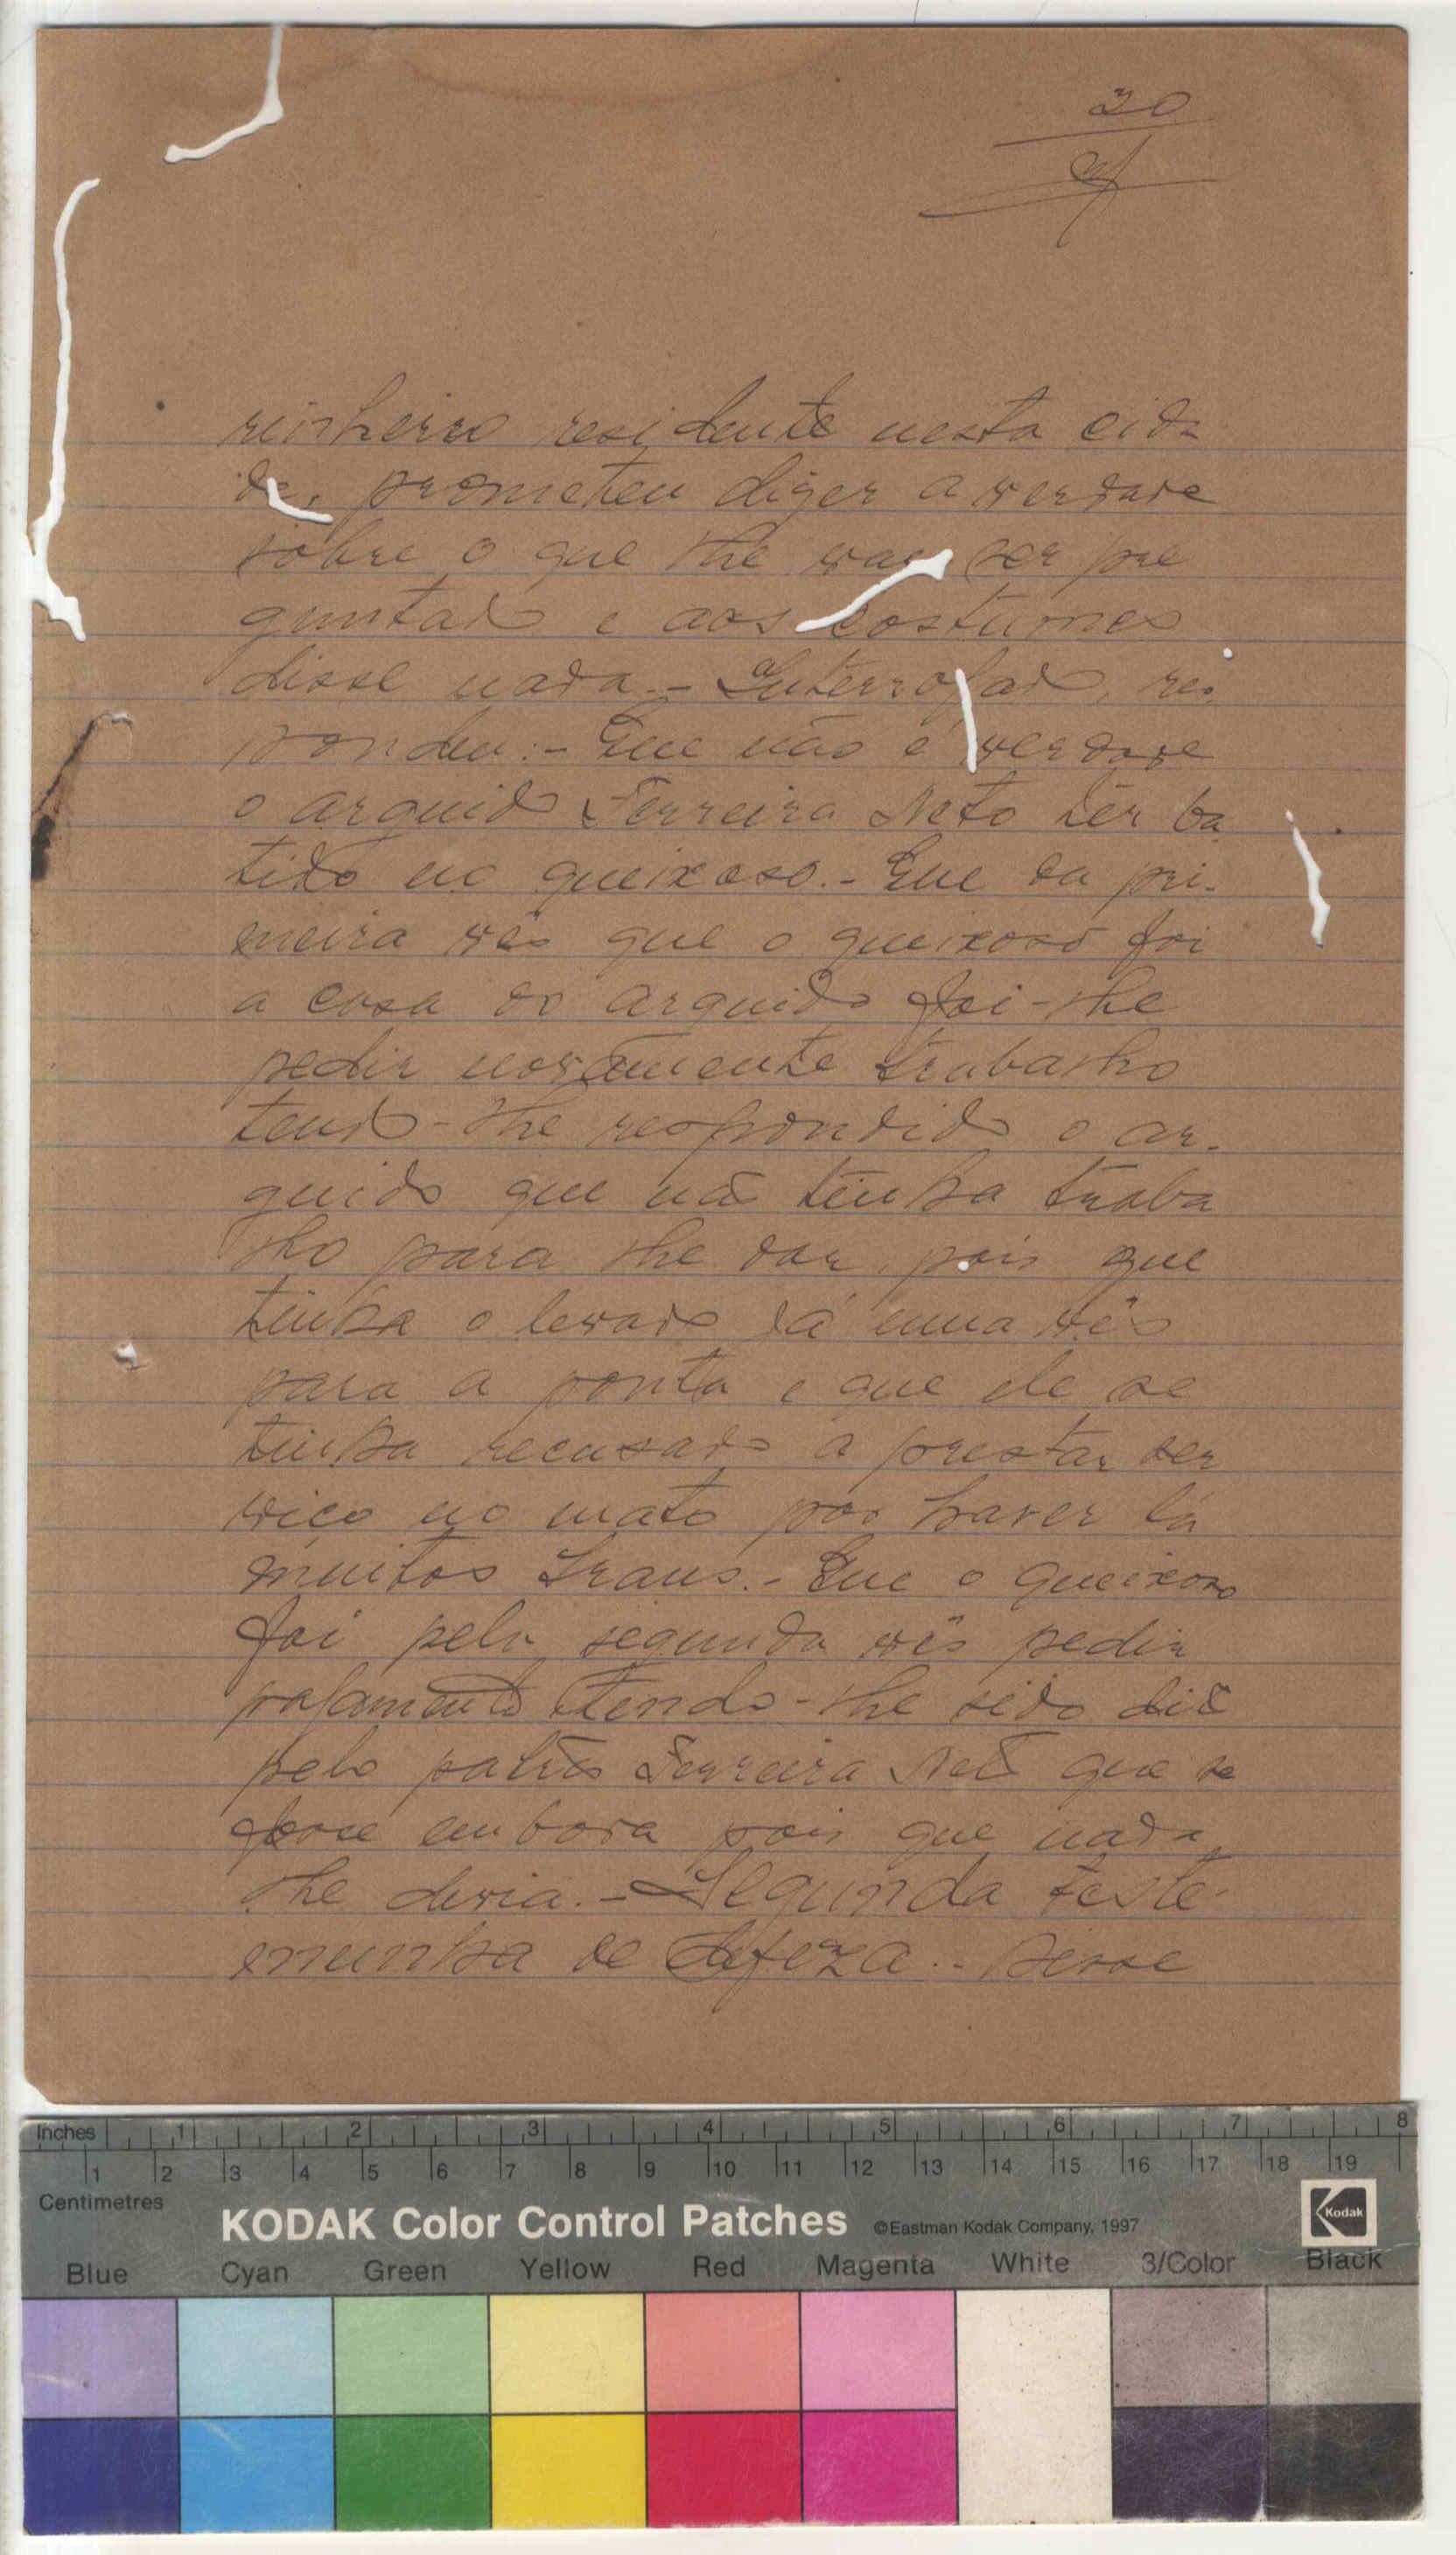 20
rinheiro residente nesta cida
de, prometeu dizer a verdade
sobre o que lhe vae ser pre
guntado e aos costumes
disse nada.- Interrogado, res
pondeu:- Que não é verdade
o arguido Ferreira Neto têr ba
tido no queixoso.- Que da pri-
meira vês que o queixoso foi
a casa do arguido foi-lhe
pedir novamente trabalho
tendo-lhe respondido o ar-
guido que não tinha traba
lho para lhe dar, pois que
tinha o levado já uma vês
para a ponta e que ele se
tinha recusado a prestar ser
viço no mato por haver lá
muitos .- Que o queixoso
foi pela segunda vês pedir
pagamento tendo-lhe sido dito
pelo patrão Ferreira Neto que se
fosse embora pois que nada
lhe devia.- Segunda teste-
munha de defeza.- Disse
Inches 1 2 3 4 5 6 7 8
Centimetres 1 2 3 4 5 6 7 8 9 10 11 12 13 14 15 16 17 18 19
KODAK Color Control Patches ©Eastman Kodak Company, 1997 Kodak
Blue Cyan Green Yellow Red Magenta White 3/Color Black